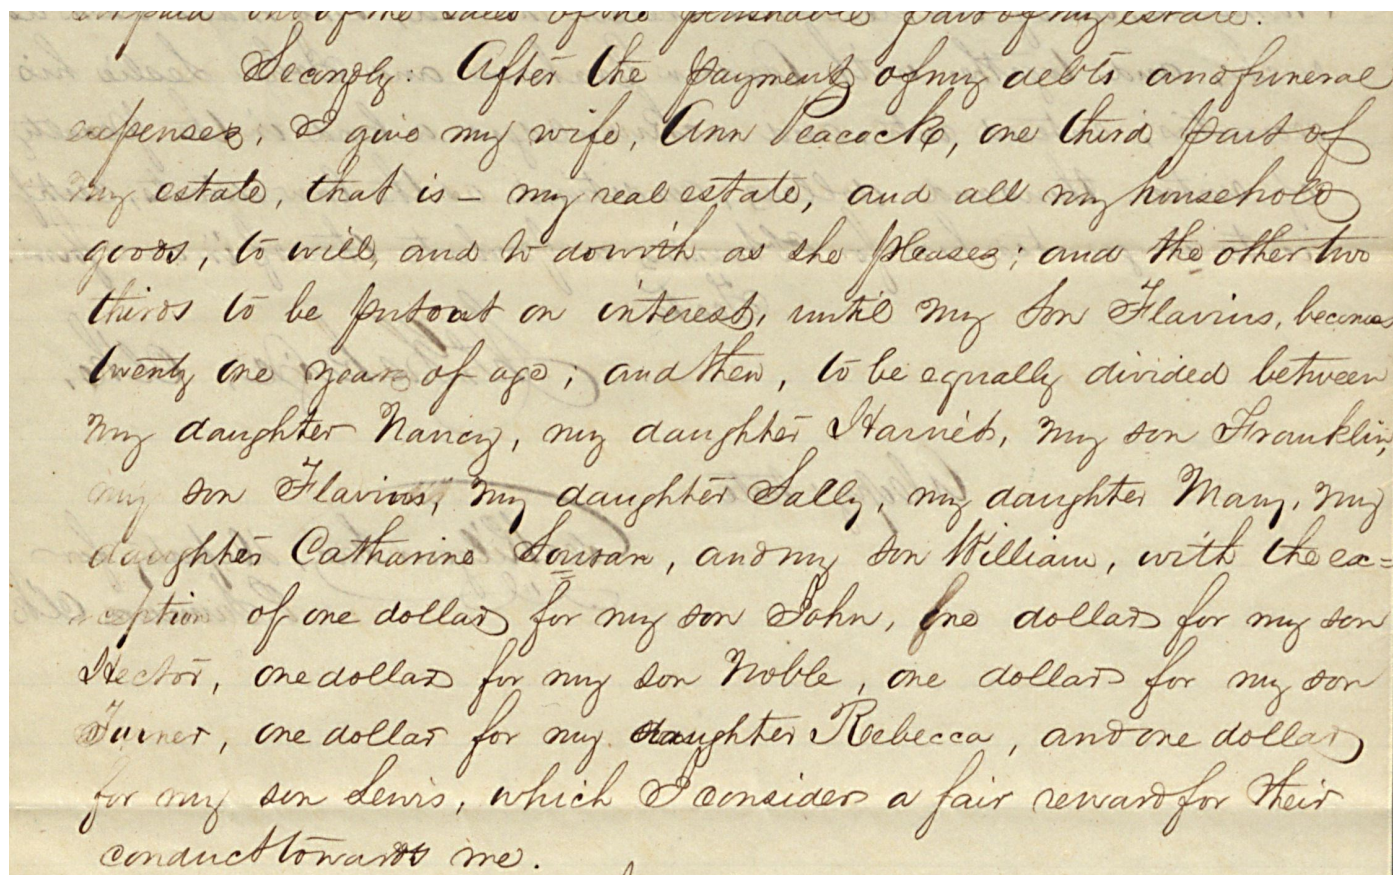 out of the sales of the perishable part of my estate.
Secondly: After the payment of my debts and funeral
expenses, I give my wife, Ann Peacock, one third part of
my estate, that is – my real estate, and all my household
goods, to will, and to do with as she pleases; and the other two
thirds to be put out on interest, until my son Flavius, becomes
twenty one years of age; and then, to be equally divided between
my daughter Nancy, my daughter Harriet, my son Franklin,
my son Flavius, my daughter Sally, my daughter Mary, my
daughter Catharine Sousan, and my son William, with the ex=
ception of one dollar for my son John, one dollar for my son
Hector, one dollar for my son Noble, one dollar for my son
Turner, one dollar for my daughter Rebecca, and one dollar
for my son Lewis, which I consider a fair reward for their
conduct towards me.